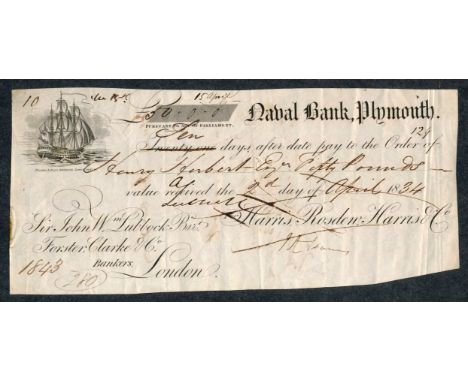 10
15 April
£50-0-0 Naval Bank, Plymouth.
PURSUANT TO ACT OF PARLIAMENT.
Ten 124
Twenty one days after date pay to the Order of
Henry Herbert Esqr Fifty Pounds
value received the 2d day of April 1834
Sir John Wm. Lubbock Bart. Harris, Rosdew, Harris & Co
Forster, Clarke & Co.
Bankers,
1843 London.
£80